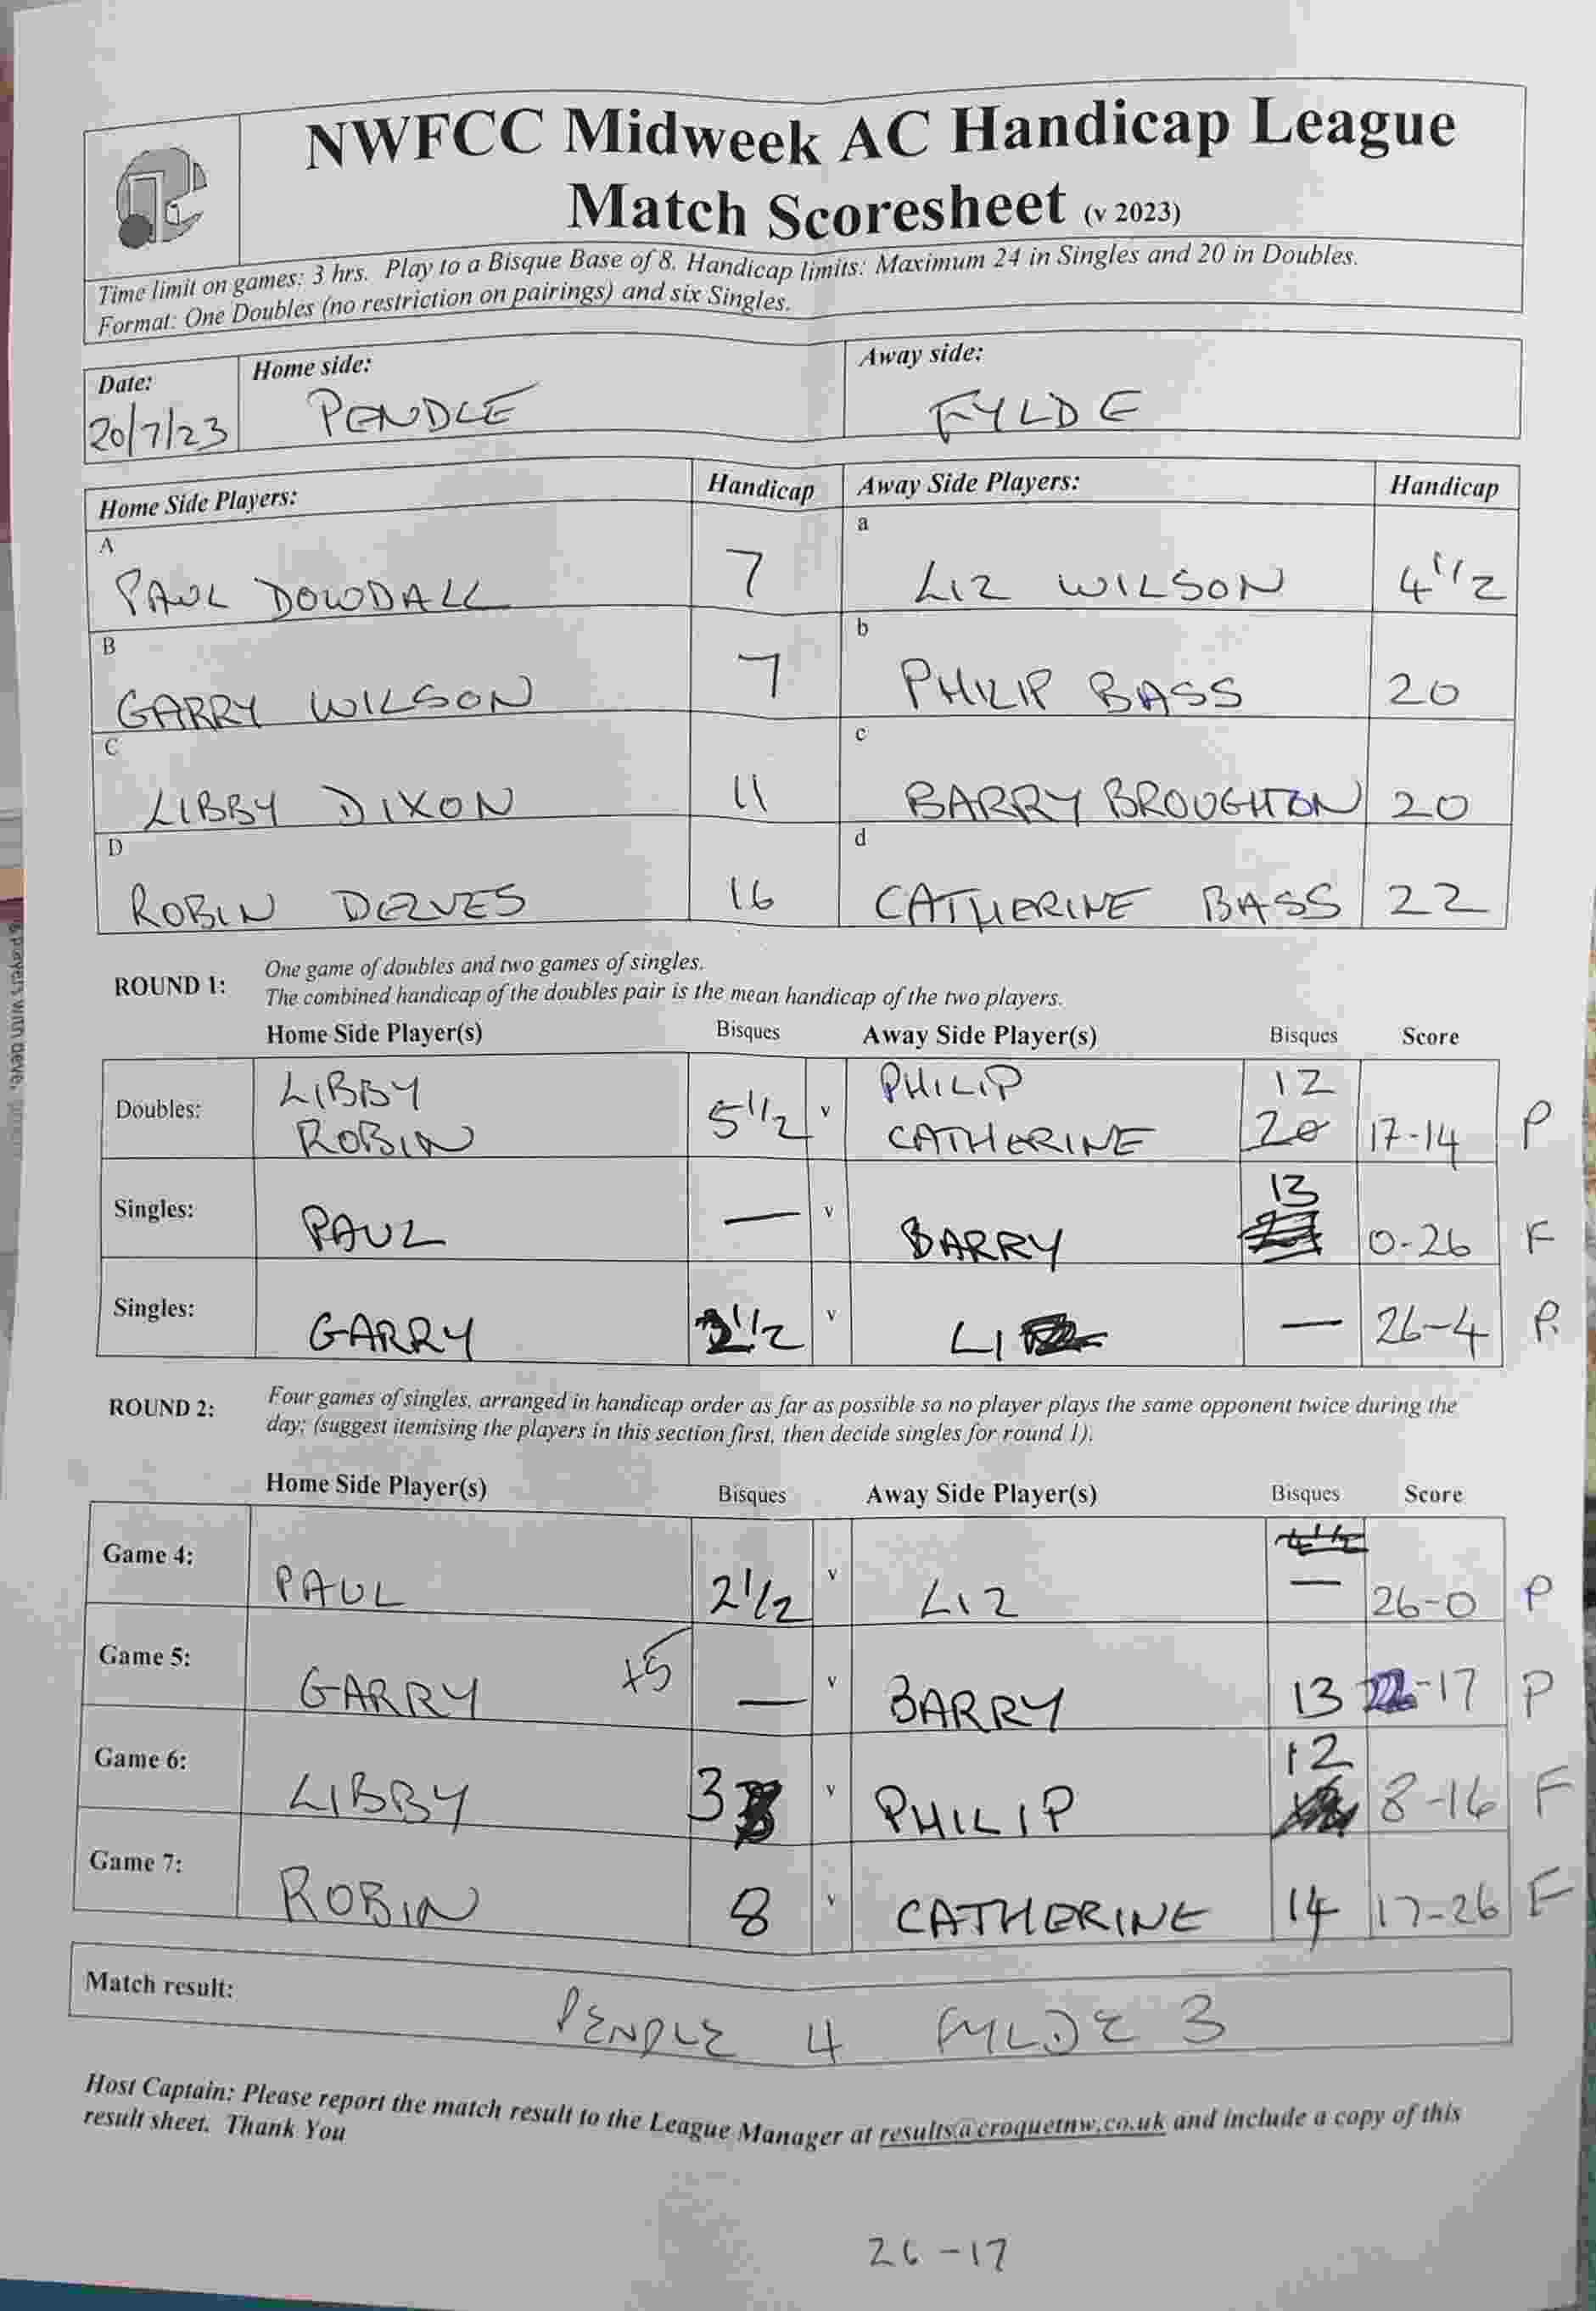 NWFCC Midweek AC Handicap League
Match Scoresheet (v 2023)
Time limit on games: 3 hrs. Play to a Bisque Base of 8. Handicap limits: Maximum 24 in Singles and 20 in Doubles.
Format: One Doubles (no restriction on pairings) and six Singles.
Date: Home side: Away side:
20/7/23 PENDLE FYLDE
Home Side Players: Handicap Away Side Players: Handicap
A a
PAUL DOWDALL 7 LIZ WILSON 4 1/2
B b
GARRY WILSON 7 PHILIP BASS 20
C c
LIBBY DIXON 11 BARRY BROUGHTON 20
D d
ROBIN DELVES 16 CATHERINE BASS 22
ROUND 1: One game of doubles and two games of singles.
The combined handicap of the doubles pair is the mean handicap of the two players.
Home Side Player(s) Bisques Away Side Player(s) Bisques Score
Doubles: LIBBY 5 1/2 v PHILIP 12
ROBIN CATHERINE 20 17-14 P
Singles: PAUL — v BARRY 13 0-26 F
Singles: GARRY 2 1/2 v LI — 26-4 P
ROUND 2: Four games of singles, arranged in handicap order as far as possible so no player plays the same opponent twice during the
day; (suggest itemising the players in this section first, then decide singles for round 1).
Home Side Player(s) Bisques Away Side Player(s) Bisques Score
Game 4: PAUL 2 1/2 v LIZ — 26-0 P
Game 5: GARRY +5 — v BARRY 13 -17 P
Game 6: LIBBY 3 v PHILIP 12 8-16 F
Game 7: ROBIN 8 v CATHERINE 14 17-26 F
Match result: PENDLE 4 FYLDE 3
Host Captain: Please report the match result to the League Manager at results@croquetnw.co.uk and include a copy of this
result sheet. Thank You
26-17